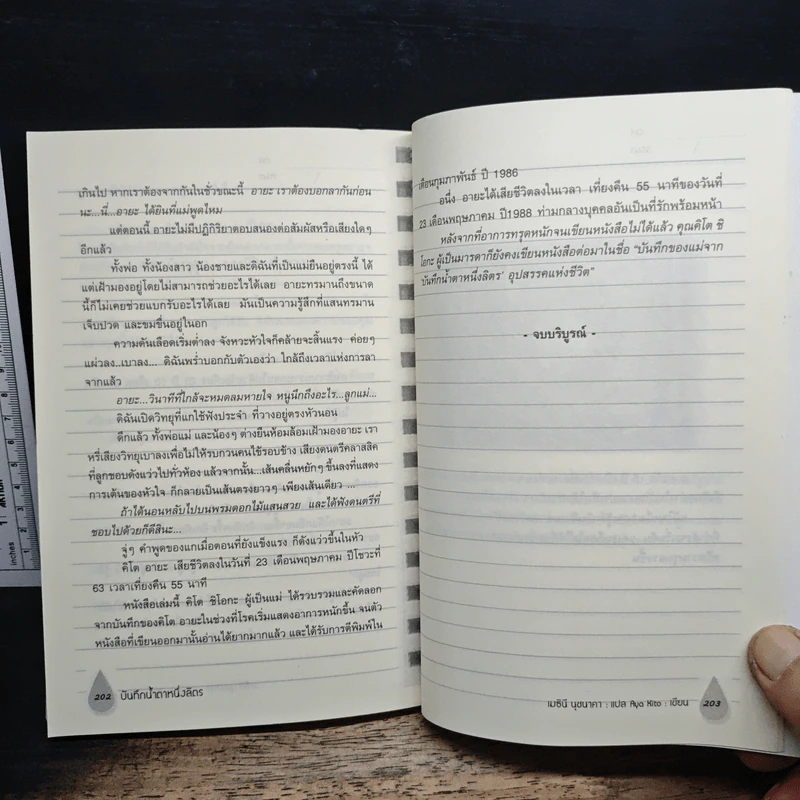 เกินไป หากเราต้องจากกันในชั่วขณะนี้ อายะ เราต้องบอกลากันก่อน
นะ...นี่...อายะ ได้ยินที่แม่พูดไหม
แต่ตอนนี้ อายะไม่มีปฏิกิริยาตอบสนองต่อสัมผัสหรือเสียงใดๆ
อีกแล้ว
ทั้งพ่อ ทั้งน้องสาว น้องชายและดิฉันที่เป็นแม่ยืนอยู่ตรงนี้ ได้
แต่เฝ้ามองอยู่โดยไม่สามารถช่วยอะไรได้เลย อายะทรมานถึงขนาด
นี้ก็ไม่เคยช่วยแบกรับอะไรได้เลย มันเป็นความรู้สึกที่แสนทรมาน
เจ็บปวด และขมขื่นอยู่ในอก
ความดันเลือดเริ่มต่ำลง จังหวะหัวใจก็คล้ายจะสิ้นแรง ค่อยๆ
แผ่วลง..เบาลง... ดิฉันพร่ำบอกกับตัวเองว่า ใกล้ถึงเวลาแห่งการลา
จากแล้ว
อายะ...วินาทีที่ใกล้จะหมดลมหายใจ หนูนึกถึงอะไร...ลูกแม่...
ดิฉันเปิดวิทยุที่แกใช้ฟังประจำ ที่วางอยู่ตรงหัวนอน
ดึกแล้ว ทั้งพ่อแม่ และน้องๆ ต่างยืนห้อมล้อมเฝ้ามองอายะ เรา
หรี่เสียงวิทยุเบาลงเพื่อไม่ให้รบกวนคนใช้รอบข้าง เสียงดนตรีคลาสสิค
ที่ลูกชอบดังแว่วไปทั่วห้อง แล้วจากนั้น...เส้นคลื่นหยักๆ ขึ้นลงที่แสดง
การเต้นของหัวใจ ก็กลายเป็นเส้นตรงยาวๆ เพียงเส้นเดียว ...
ถ้าได้นอนหลับไปบนพรมดอกไม้แสนสวย และได้ฟังดนตรีที่
ชอบไปด้วยก็ดีสินะ...
จู่ๆ คำพูดของแกเมื่อตอนที่ยังแข็งแรง ก็ดังแว่วขึ้นในหัว
คิโต อายะ เสียชีวิตลงในวันที่ 23 เดือนพฤษภาคม ปีโชวะที่
63 เวลาเที่ยงคืน 55 นาที
หนังสือเล่มนี้ คิโต ชิโอกะ ผู้เป็นแม่ ได้รวบรวมและคัดลอก
จากบันทึกของคิโต อายะในช่วงที่โรคเริ่มแสดงอาการหนักขึ้น จนตัว
หนังสือที่เขียนออกมานั้นอ่านได้ยากมากแล้ว และได้รับการตีพิมพ์ใน
202 บันทึกน้ำตาหนึ่งลิตร
เดือนกุมภาพันธ์ ปี 1986
อนึ่ง อายะได้เสียชีวิตลงในเวลา เที่ยงคืน 55 นาทีของวันที่
23 เดือนพฤษภาคม ปี1988 ท่ามกลางบุคคลอันเป็นที่รักพร้อมหน้า
หลังจากที่อาการทรุดหนักจนเขียนหนังสือไม่ได้แล้ว คุณคิโต ชิ
โอกะ ผู้เป็นมารดาก็ยังคงเขียนหนังสือต่อมาในชื่อ “บันทึกของแม่จาก
บันทึกน้ำตาหนึ่งลิตร’ อุปสรรคแห่งชีวิต”
- จบบริบูรณ์ -
เมธินี นุชนาคา : แปล Aya Kito : เขียน 203
inches